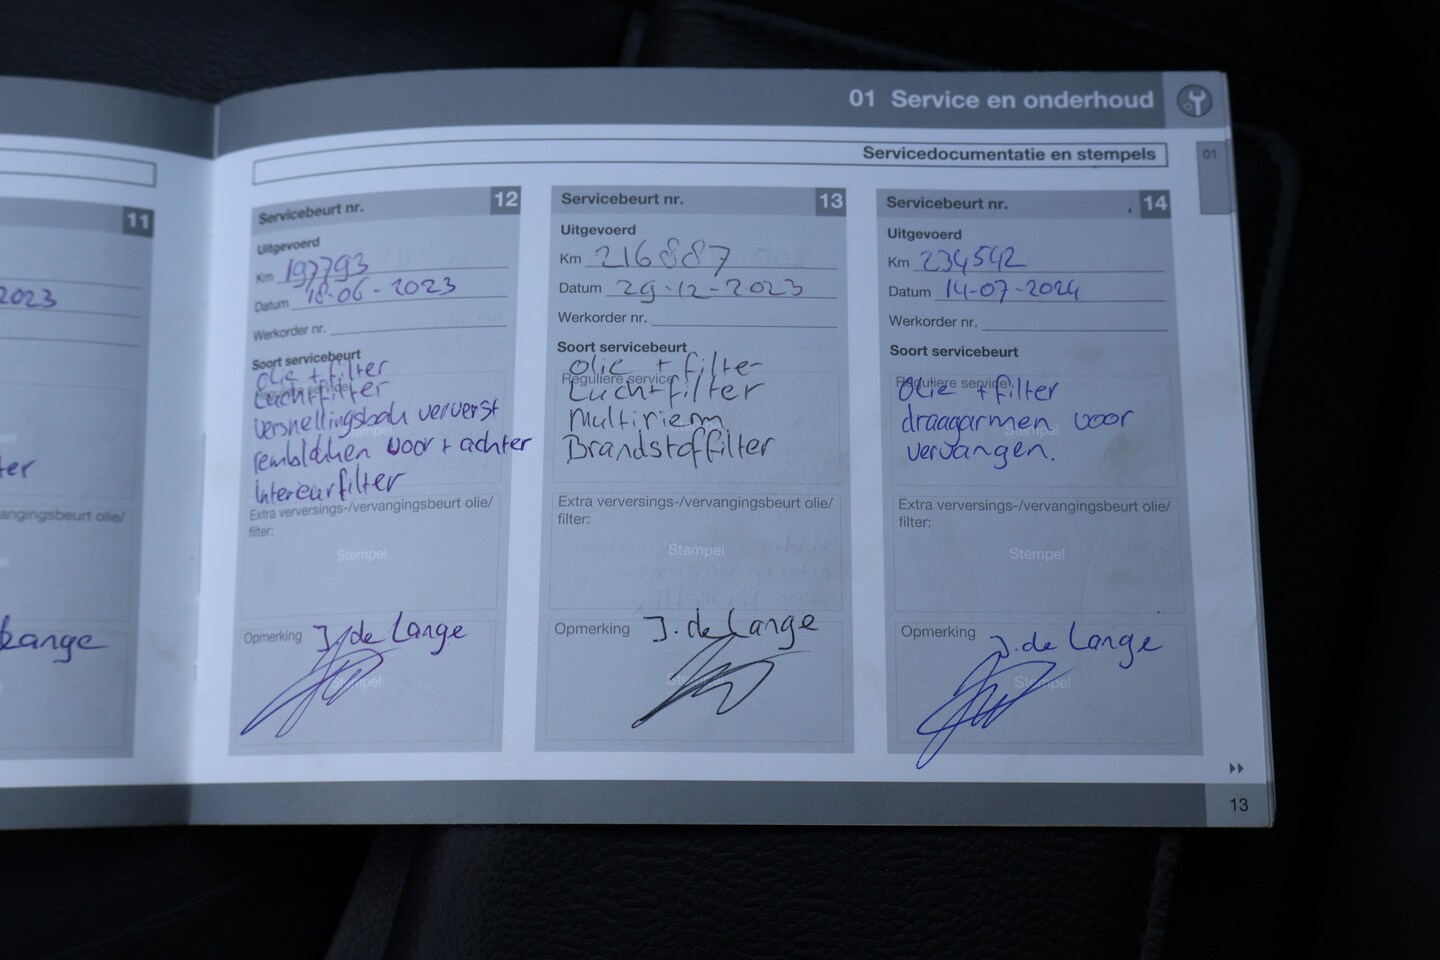 01 Service en onderhoud
Servicedocumentatie en stempels
01
11
2023
ter
angingsbeurt olie/
Lange
Servicebeurt nr. 12
Uitgevoerd
Km 197793
Datum 18-06-2023
Werkorder nr.
Soort servicebeurt
Olie + filter
Luchtfilter
versnellingsbak ververst
remblokken voor + achter
Interieurfilter
Extra verversings-/vervangingsbeurt olie/
filter:
Stempel
Opmerking J. de Lange
Stempel
Servicebeurt nr. 13
Uitgevoerd
Km 216887
Datum 29-12-2023
Werkorder nr.
Soort servicebeurt
Olie + filter
Reguliere service
Luchtfilter
Multiriem
Brandstoffilter
Extra verversings-/vervangingsbeurt olie/
filter:
Stempel
Opmerking J. de Lange
Servicebeurt nr. 14
Uitgevoerd
Km 234542
Datum 14-07-2024
Werkorder nr.
Soort servicebeurt
Reguliere service
Olie + filter
draagarmen voor
Stempel
vervangen.
Extra verversings-/vervangingsbeurt olie/
filter:
Stempel
Opmerking J. de Lange
Stempel
13